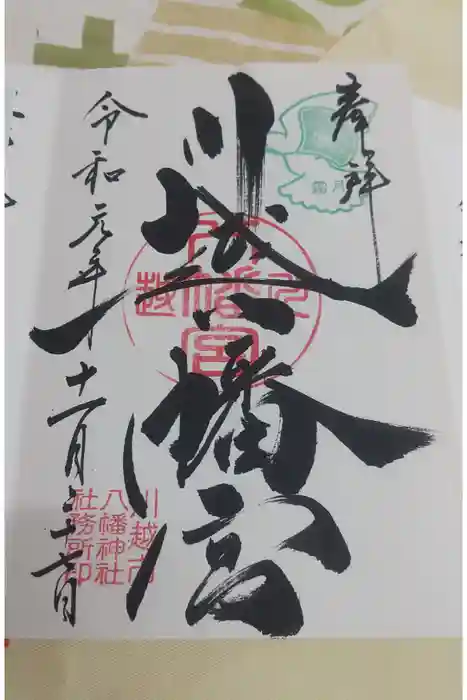 奉拝
霜月
川越八幡宮
川越
八幡宮
川越市
八幡神社
社務所印
令和元年十一月二十七日